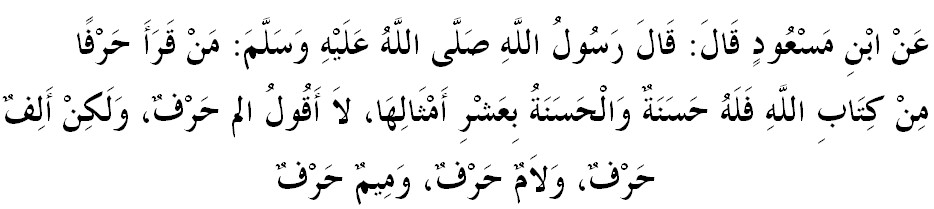 عَنْ ابْنِ مَسْعُودٍ قَالَ: قَالَ رَسُولُ اللَّهِ صَلَّى اللَّهُ عَلَيْهِ وَسَلَّمَ: مَنْ قَرَأَ حَرْفًا
مِنْ كِتَابِ اللَّهِ فَلَهُ حَسَنَةٌ وَالْحَسَنَةُ بِعَشْرِ أَمْثَالِهَا، لاَ أَقُولُ الم حَرْفٌ، وَلَكِنْ أَلِفٌ
حَرْفٌ، وَلاَمٌ حَرْفٌ، وَمِيمٌ حَرْفٌ